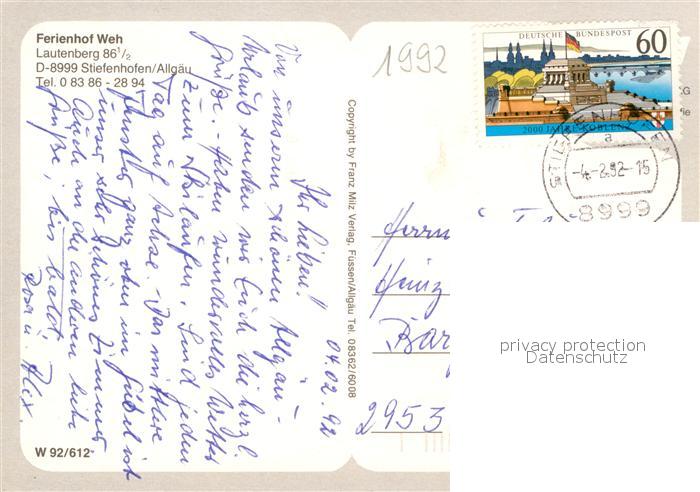 Ferienhof Weh
Lautenberg 86 1/2
D-8999 Stiefenhofen/Allgäu
Tel. 0 83 86 - 28 94
04.02.92
Ihr Lieben!
Von unserm schönen Allgäu-
Urlaub senden wir Euch die herzl.
Grüße. - Haben wundervolles Wetter
zum Skilaufen. Sind jeden
Tag auf Achse. - Das mittlere
Fenster ganz oben im Giebel ist
unser sehr schönes Zimmer
Auch an die anderen liebe
Grüße, bis bald!
Rosi u. Alex.
W 92/612
Copyright by Franz Milz Verlag, Füssen/Allgäu Tel. 08362/6008
1992
DEUTSCHE BUNDESPOST
60
2000 JAHRE KOBLENZ
STIEFENHOFEN
a
-4.-2.92-15
8999
Herrn
Heinz
Bar
2953
privacy protection
Datenschutz